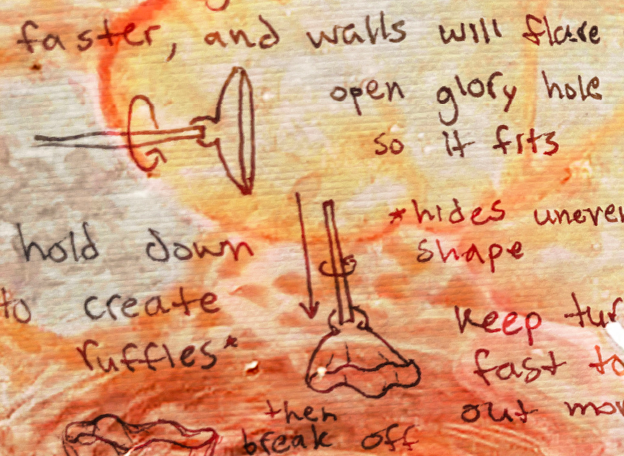 faster, and walls will flare
open glory hole
so it fits
*hides uneven
shape
hold down
to create
ruffles*
keep tur
fast to
out mor
then
break off